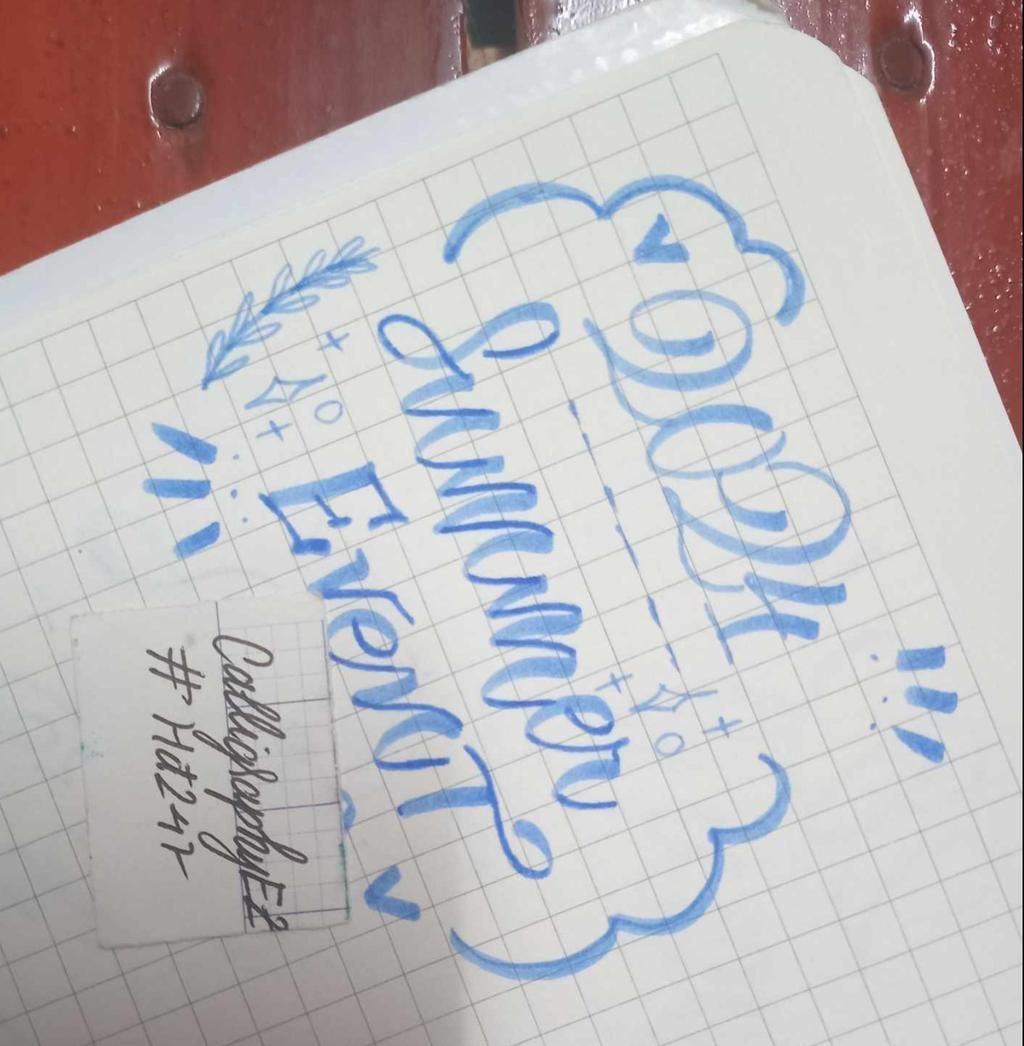 2024
Summer
EvenT
CalligraphyEz
#Hd247